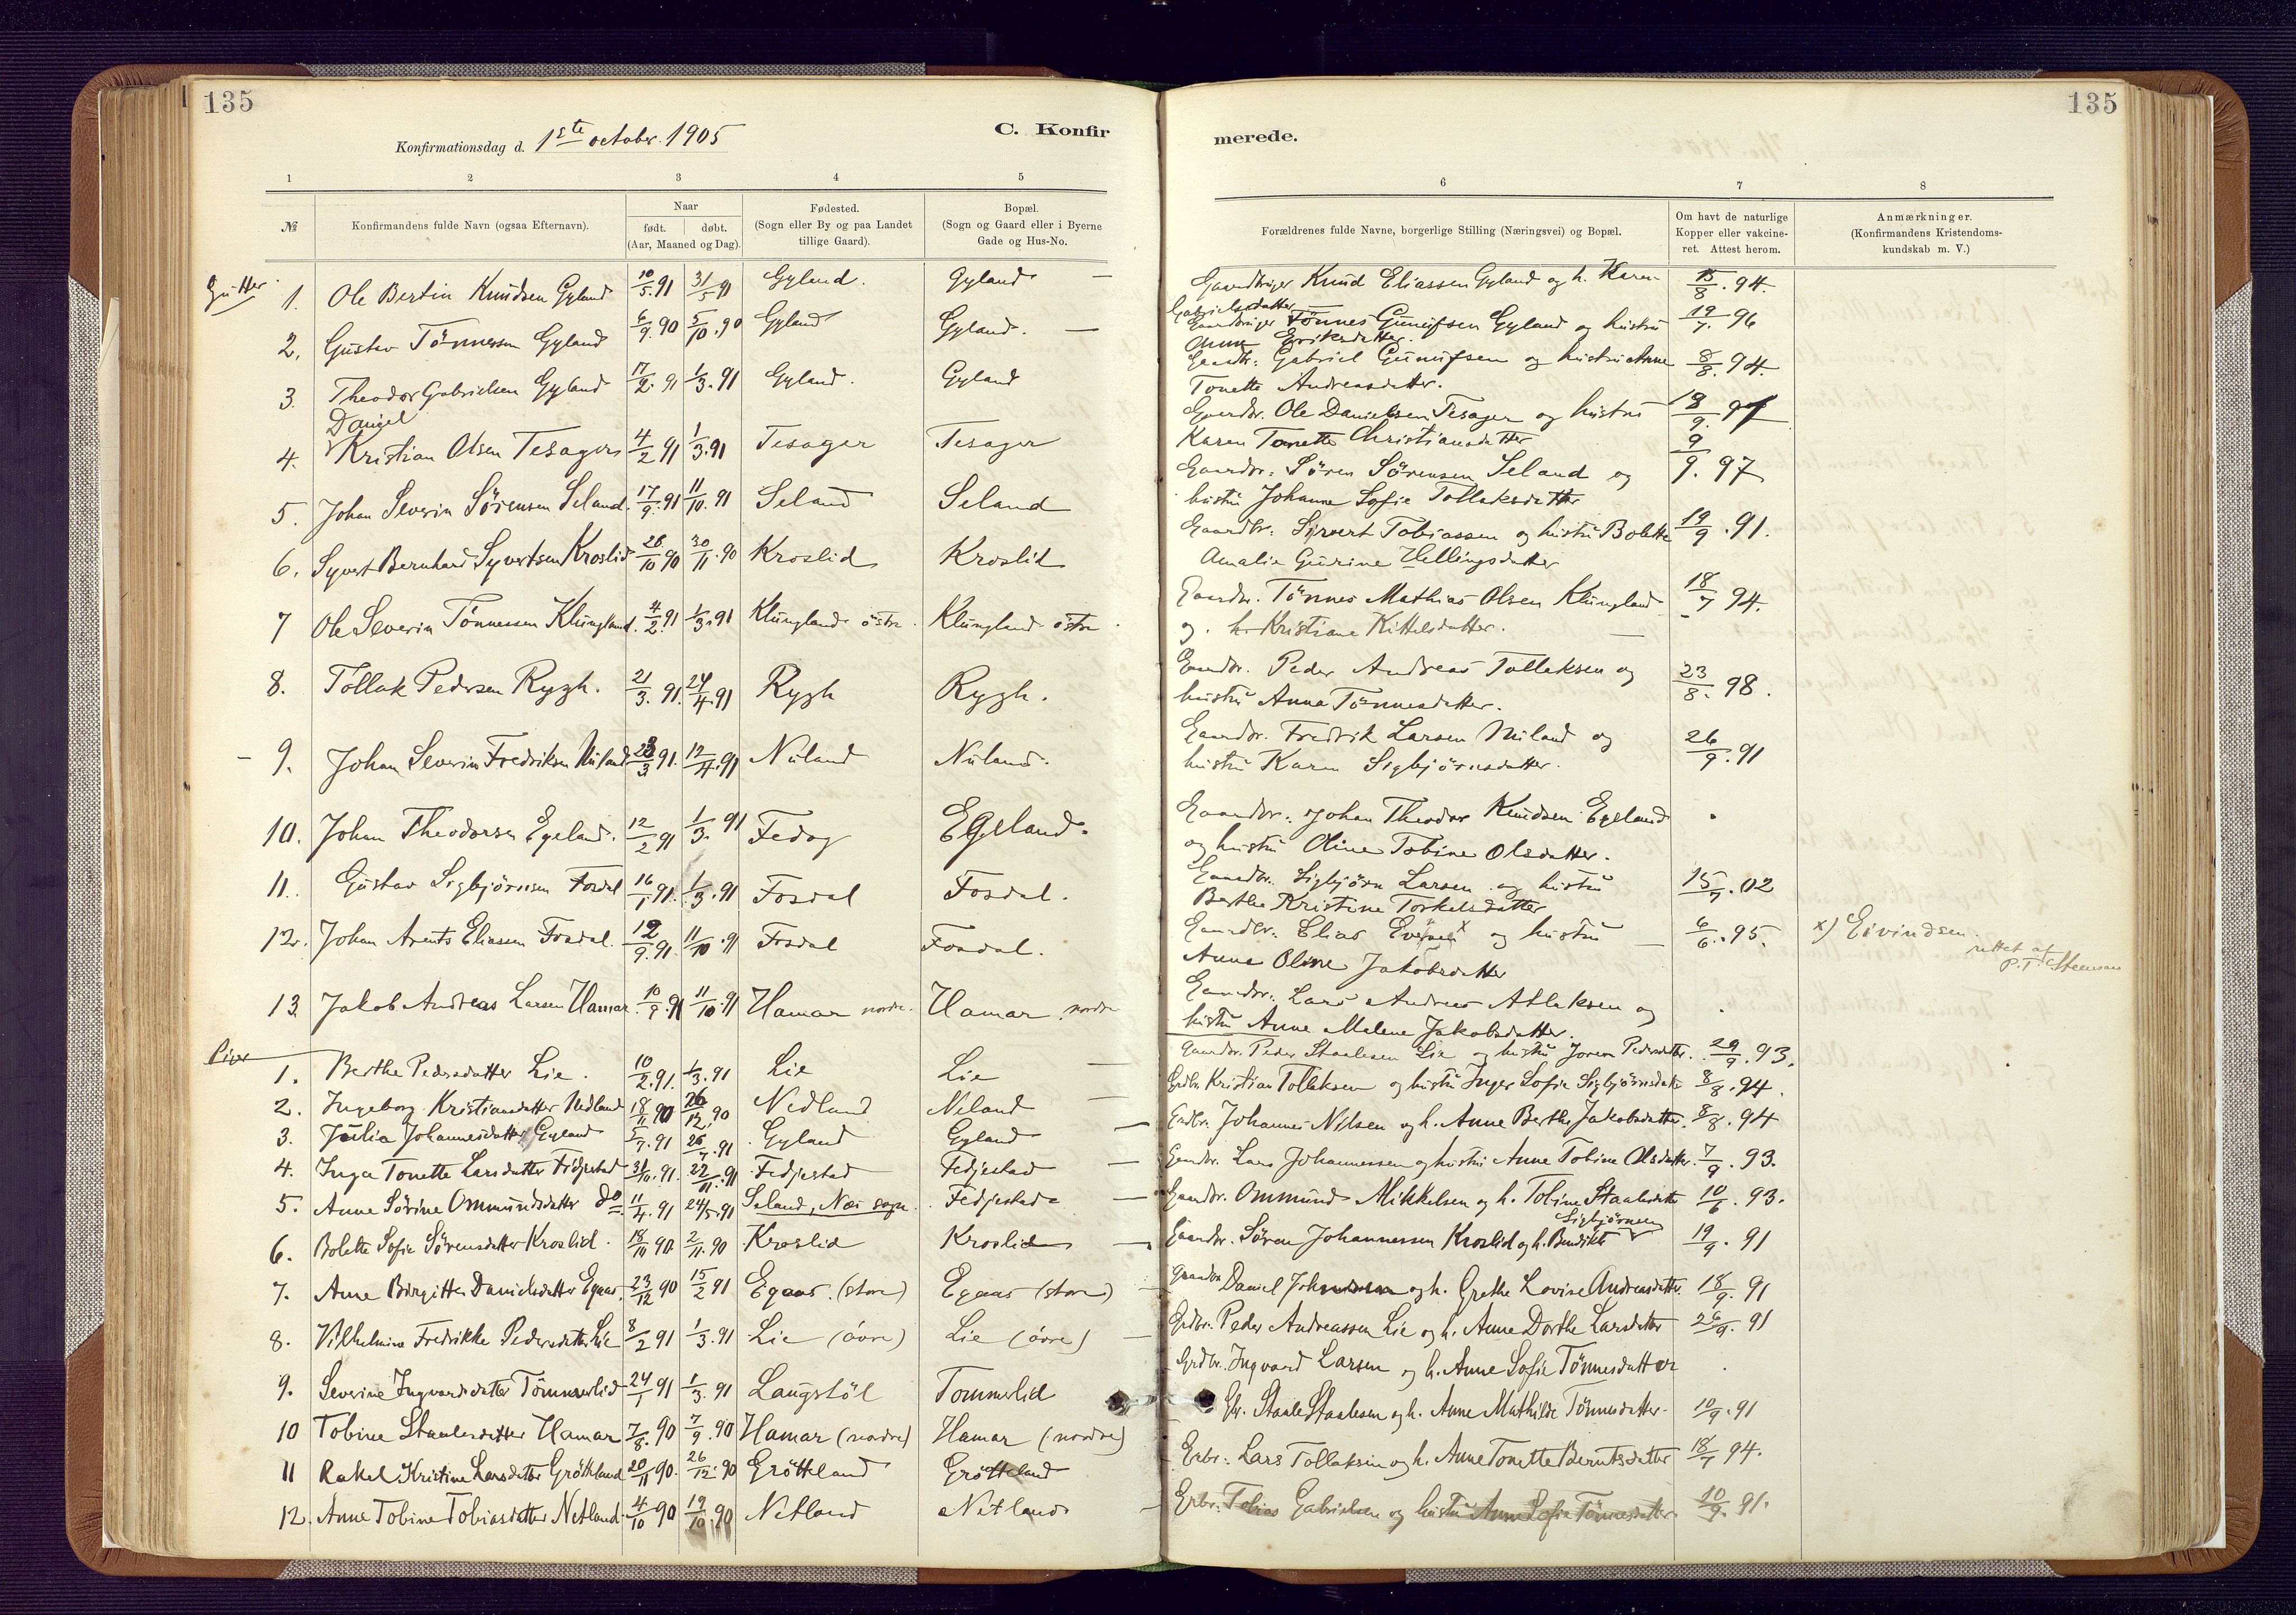 135
135
Konfirmationsdag d. 1ste october 1905
C. Konfir
merede.
1 2 3 4 5
6 7 8
№
Konfirmandens fulde Navn (ogsaa Efternavn).
Naar
født. døbt.
(Aar, Maaned og Dag).
Fødested.
(Sogn eller By og paa Landet
tillige Gaard).
Bopæl.
(Sogn og Gaard eller i Byerne
Gade og Hus-No.
Forældrenes fulde Navne, borgerlige Stilling (Næringsvei) og Bopæl.
Om havt de naturlige
Kopper eller vakcine-
ret. Attest herom.
Anmærkninger.
(Konfirmandens Kristendoms-
kundskab m. V.)
Gutter
1. Ole Bertin Knudsen Gyland 10/5.91 31/5 91 Gyland. Gyland —
Gaardbruger Knud Eliassen Gyland og h. Karen 15/8.94.
Gabrielsdatter
2. Gustav Tönnessen Gyland 6/9.90 5/10.90 Gyland Gyland. —
Gaardbruger Tönnes Gunufsen Gyland og hustru 19/7.96
Anne Eriksdatter.
3. Theodor Gabrielsen Gyland 17/2.91 1/3.91 Gyland. Gyland
Gaardbr: Gabriel Gunufsen og hustru Anne 8/8.94.
Tonette Andreasdatter.
Daniel
4. Kristian Olsen Tesager 4/2 91 1/3.91 Tesager Tesager
Gaardbr. Ole Danielsen Tesager og hustru
Karen Tonette Christiansdatter
5. Johan Severin Sörensen Seland. 17/9.91 11/10.91 Seland Seland
Gaardbr: Sören Sörensen Seland og 9/9.97
hustru Johanne Sofie Tollaksdatter
6. Syvert Bernhard Syvertsen Kroslid 26/10 90 30/11.90 Kroslid Kroslid
Gaardbr: Sivert Tobiassen og hustru Bolette 19/9.91.
Amalie Gurine Hellingsdatter
7 Ole Severin Tönnessen Klungland. 4/2.91 1/3.91 Klungland östre. Klungland östre.
Gaardbr. Tönnes Mathias Olsen Klungland 18/7 94.
og. h. Kristiane Kittelsdatter. —
8. Tollak Pedersen Rygh. 21/3.91. 24/4.91 Rygh Rygh.
Gaardbr. Peder Andreas Tollaksen og 23/8.98.
hustru Anna Tönnesdatter.
- 9. Johan Severin Fredriksen Nuland 23/3 91. 12/4.91 Nuland Nuland.
Gaardbr. Fredrik Larsen Nuland og 26/9.91
hustru Karen Sigbjörnsdatter.
10. Johan Theodorsen Egeland. 12/2 91 1/3.91 Fedog Egeland.
Gaardbr: Johan Theodor Knudsen Egeland
og hustru Oline Tobine Olsdatter.
11. Gustav Sigbjörnsen Fosdal 16/1 91. 1/3.91 Fosdal Fosdal.
Gaardbr. Sigbjörn Larsen og hustru 15/7.02
Berthe Kristine Torkelsdatter
12. Johan Arents Eliassen Fosdal. 12/9.91. 11/10.91 Fosdal Fosdal.
Gaardbr: Elias x og hustru — 6/6.95. x) Eivindsen.
Anne Oline Jakobsdatter
rettet af
P. T.
13. Jakob Andreas Larsen Hamar. 10/9.91 11/10.91 Hamar nordre. Hamar nordre
Gaardbr: Lars Andreas Atlaksen og
hustru Anne Malene Jakobsdatter.
Piger
1. Berthe Pedersdatter Lie. 10/2.91. 1/3.91 Lie Lie —
Gaardbr. Peder Staalesen Lie og hustru Joren Pedersdatter. 29/9.93.
2. Ingeborg Kristiansdatter Nedland 18/11 90 26/12.90 Nedland Neland —
Grdbr. Kristian Tollaksen og hustru Inger Sofie Sigbjörnsdatr 8/8.94.
3. Julia Johannesdatter Gyland 5/7.91 26/7.91 Gyland Gyland —
Grdbr. Johannes Nilsen og h. Anne Berthe Jakobsdatter. 8/8.94
4. Inga Tonette Larsdatter Fidjestad 31/10.91. 22/11.91 Fedjestad Fedjestad —
Gaardbr. Lars Johannessen og hustru Anne Tobine Olsdatter. 7/9.93.
5. Anne Sörine Ommundsdatter do. 11/4.91 24/5.91 Seland, Næs sogn. Fedjestad —
Gaardbr. Ommund Mikkelsen og h. Tobine Staalesdatter 10/6.93.
6. Bolette Sofie Sörensdatter Kroslid. 18/10 90. 2/11.90 Kroslid Kroslid —
Gaardbr. Sören Johannessen Kroslid og h. Bendikte 19/9.91
7. Anne Birgitte Danielsdatter Egaas. 23/12 90 15/2 91 Egaas (store) Egaas (store)
Gaardbr Daniel og h. Grethe Lovise Andreasdatter. 18/9.91
8. Vilhelmine Fredrikke Pedersdatter Lie 8/2 91 1/3.91 Lie (övre) Lie (övre) —
Grdbr. Peder Andreassen Lie og h. Anne Dorthe Larsdatter 26/9.91
9. Severine Ingvardsdatter Tömmerlid 24/1 91 1/3.91 Langstöl Tommerlid
Grdbr. Ingvard Larsen og h. Anne Sofie Tönnesdatter
10 Tobine Staalesdatter Hamar 7/8.90 7/9.90 Hamar (nordre) Hamar (nordre)
Gbr. Staale Staalesen og h. Anne Mathilde Tönnesdatter. 10/9.91
11 Rakel Kristine Larsdatter Grötteland 20/11 90. 26/12.90 Grötteland Grötteland
Grbr: Lars Tollaksen og h. Anne Tonette Berntsdatter 18/7 94.
12. Anne Tobine Tobiasdatter Netland 4/10 90 19/10.90 Netland Netland —
Grbr: Tobias Gabrielsen og hustru Anne Sofie Tönnesdatter. 10/9.91.